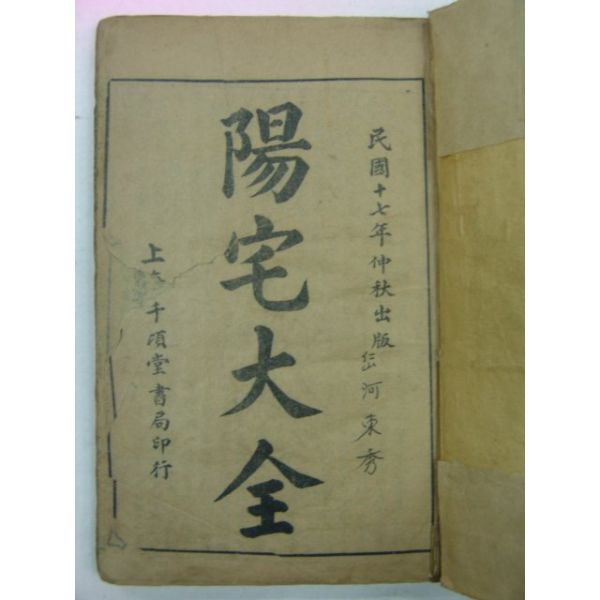 民國十七年仲秋出版
河東秀
陽宅大全
上
千頃堂書局印行